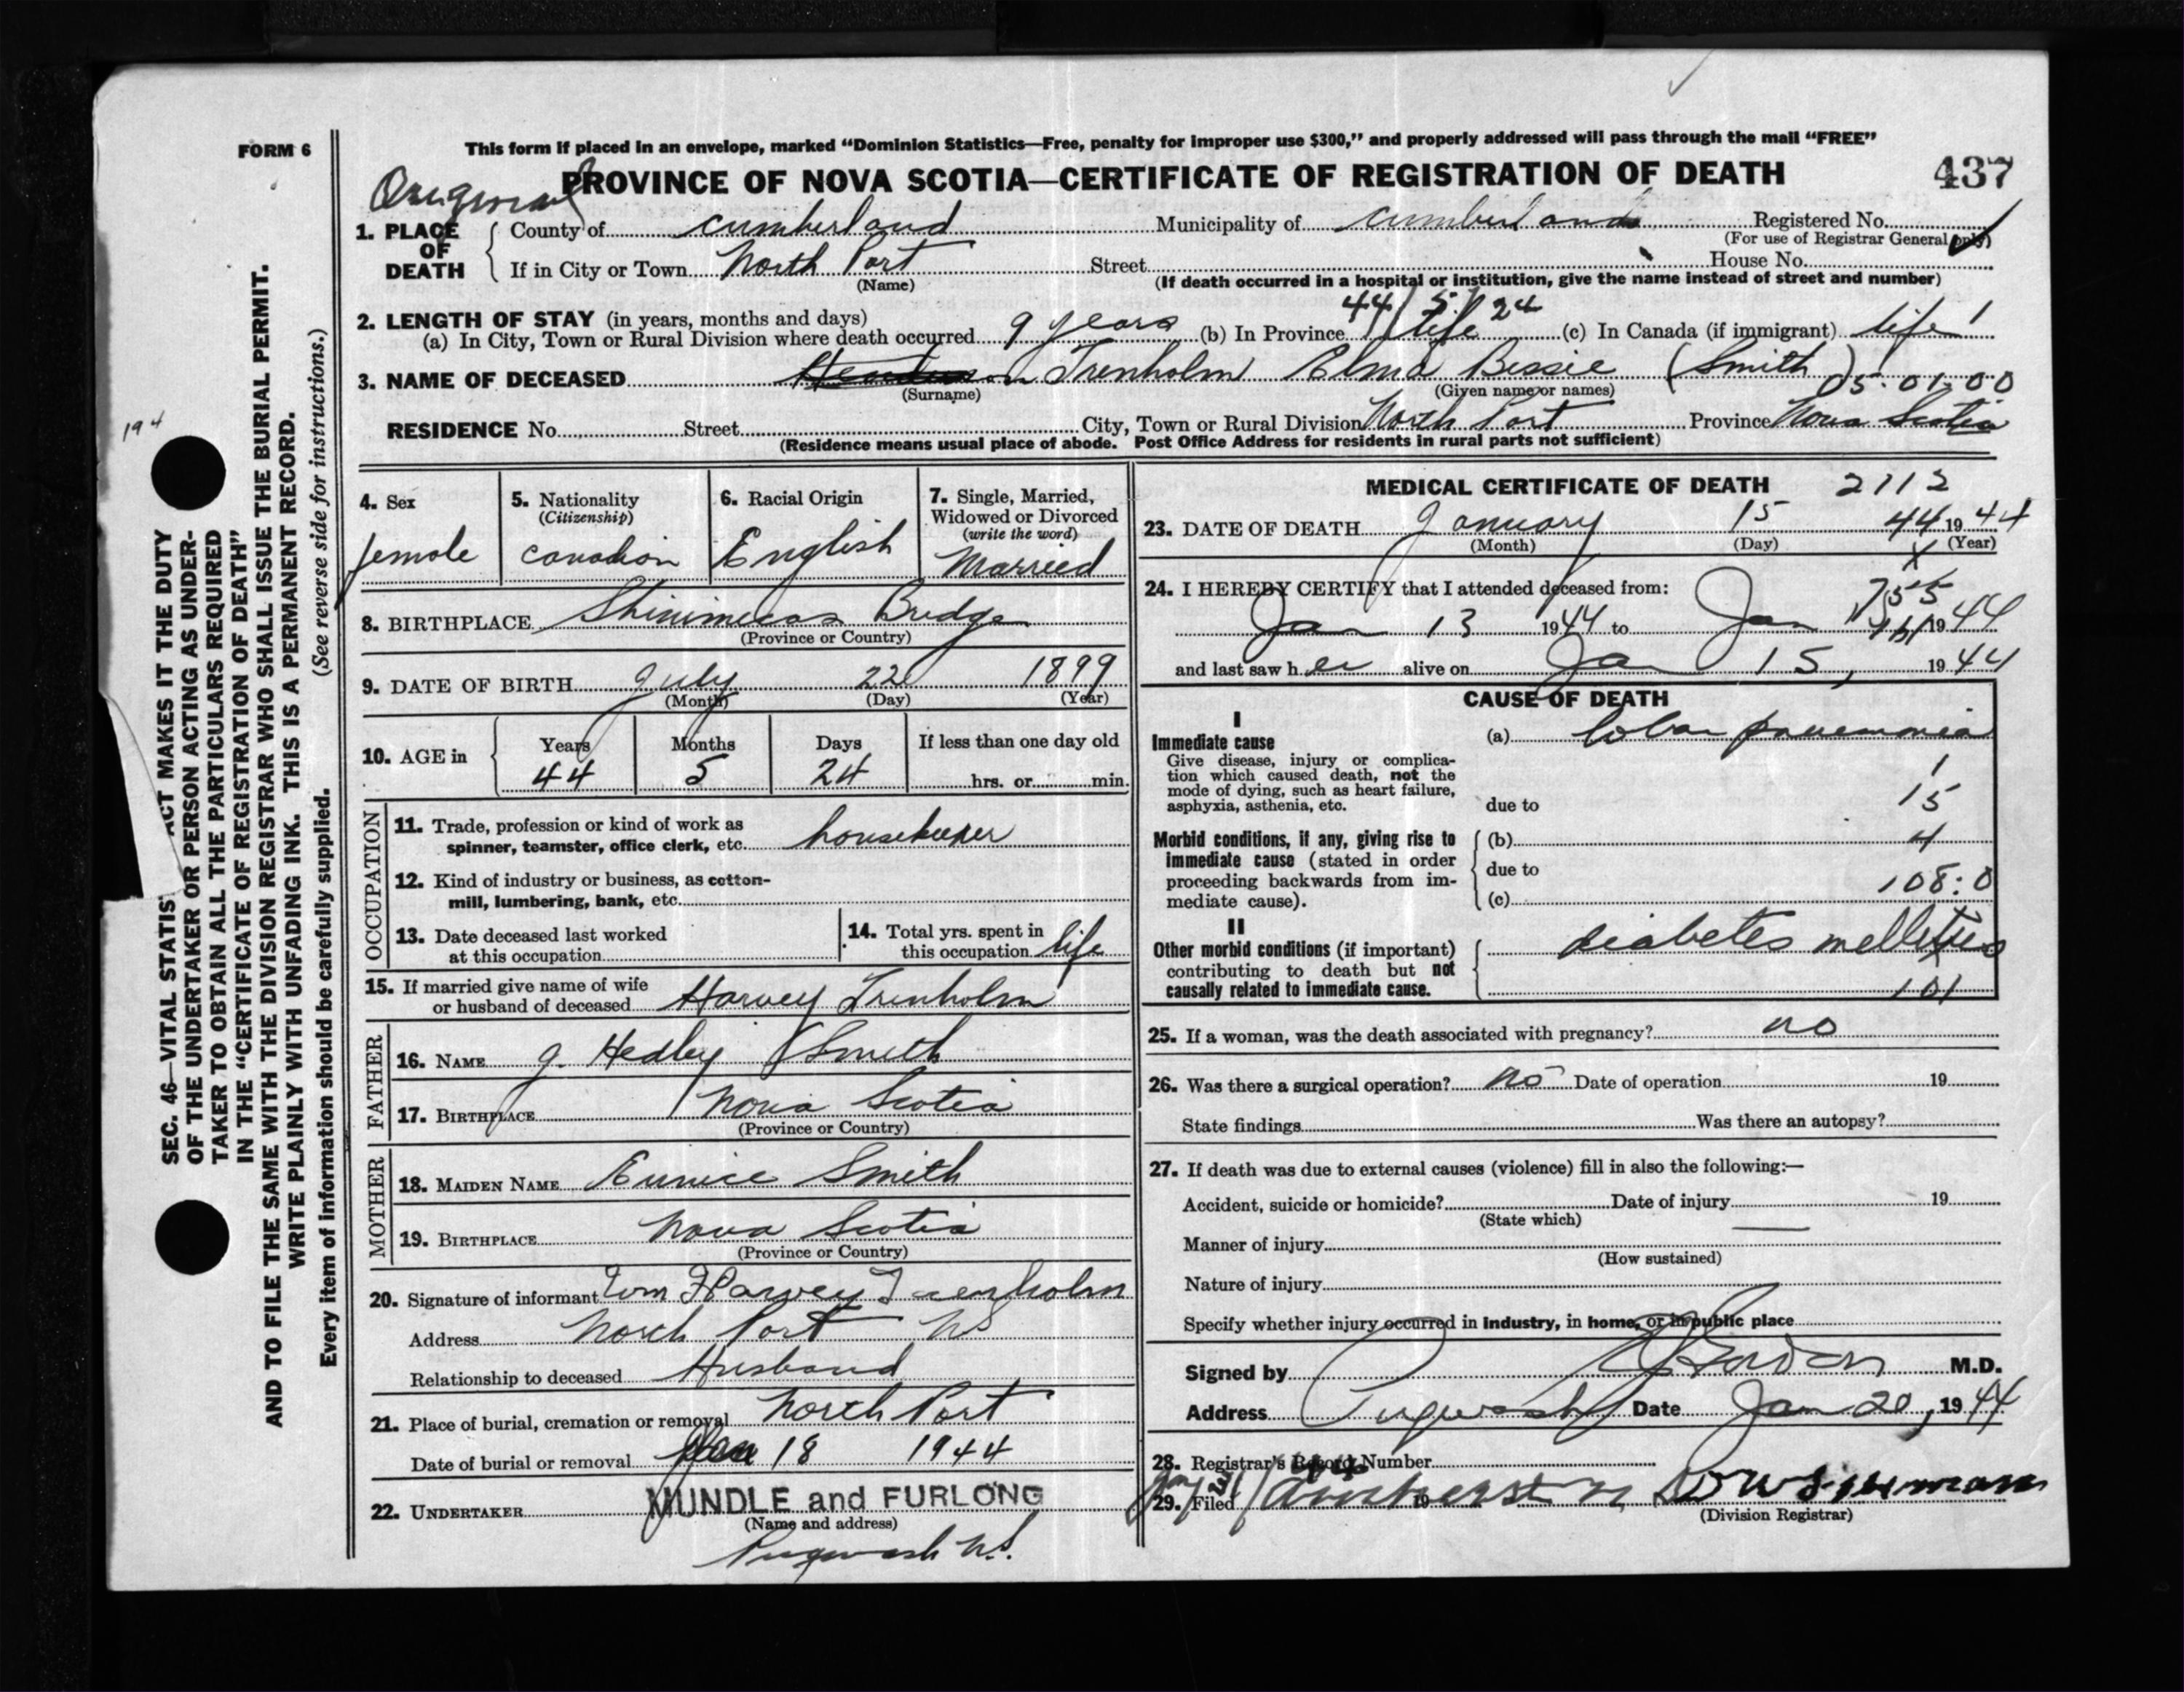 FORM 6
This form if placed in an envelope, marked “Dominion Statistics—Free, penalty for improper use $300,” and properly addressed will pass through the mail “FREE”
Original
PROVINCE OF NOVA SCOTIA—CERTIFICATE OF REGISTRATION OF DEATH
437
1. PLACE OF DEATH
County of Cumberland Municipality of Cumberland Registered No.
(For use of Registrar General only)
If in City or Town North Port Street House No.
(Name)
(If death occurred in a hospital or institution, give the name instead of street and number)
44 / 5 / 24
2. LENGTH OF STAY (in years, months and days)
(a) In City, Town or Rural Division where death occurred 9 years (b) In Province life (c) In Canada (if immigrant) life
3. NAME OF DECEASED Trenholm Elma Bessie (Smith)
(Surname) (Given name or names)
05:01:00
RESIDENCE No. Street City, Town or Rural Division North Port Province Nova Scotia
(Residence means usual place of abode. Post Office Address for residents in rural parts not sufficient)
4. Sex
female
5. Nationality
(Citizenship)
canadian
6. Racial Origin
English
7. Single, Married,
Widowed or Divorced
(write the word)
Married
8. BIRTHPLACE Shinimicas Bridge
(Province or Country)
9. DATE OF BIRTH July 22 1899
(Month) (Day) (Year)
10. AGE in
Years Months Days If less than one day old
44 5 24 hrs. or min.
OCCUPATION
11. Trade, profession or kind of work as
spinner, teamster, office clerk, etc. housekeeper
12. Kind of industry or business, as cotton-
mill, lumbering, bank, etc.
13. Date deceased last worked
at this occupation
14. Total yrs. spent in
this occupation life
15. If married give name of wife
or husband of deceased Harvey Trenholm
FATHER
16. NAME J. Hedley Smith
17. BIRTHPLACE Nova Scotia
(Province or Country)
MOTHER
18. MAIDEN NAME Eunice Smith
19. BIRTHPLACE Nova Scotia
(Province or Country)
20. Signature of informant Wm Harvey Trenholm
Address North Port NS
Relationship to deceased Husband
21. Place of burial, cremation or removal North Port
Date of burial or removal Jan 18 1944
22. UNDERTAKER MUNDLE and FURLONG
(Name and address)
Pugwash N.S.
MEDICAL CERTIFICATE OF DEATH 2112
23. DATE OF DEATH January 15 44 1944
(Month) (Day) (Year)
24. I HEREBY CERTIFY that I attended deceased from:
Jan 13 1944 to Jan 1944
and last saw her alive on Jan 15, 1944
CAUSE OF DEATH
I
Immediate cause
Give disease, injury or complica-
tion which caused death, not the
mode of dying, such as heart failure,
asphyxia, asthenia, etc.
(a) lobar pneumonia
1
due to 15
Morbid conditions, if any, giving rise to
immediate cause (stated in order
proceeding backwards from im-
mediate cause).
(b) 4
due to
108:0
(c)
II
Other morbid conditions (if important)
contributing to death but not
causally related to immediate cause.
diabetes mellitus
101
25. If a woman, was the death associated with pregnancy? no
26. Was there a surgical operation? no Date of operation 19
State findings Was there an autopsy?
27. If death was due to external causes (violence) fill in also the following:—
Accident, suicide or homicide? Date of injury 19
(State which)
Manner of injury
(How sustained)
Nature of injury
Specify whether injury occurred in industry, in home, or in public place
Signed by M.D.
Address Pugwash Date Jan 20, 1944
28. Registrar's Record Number
29. Filed 19
(Division Registrar)
194
SEC. 46—VITAL STATIS ACT MAKES IT THE DUTY
OF THE UNDERTAKER OR PERSON ACTING AS UNDER-
TAKER TO OBTAIN ALL THE PARTICULARS REQUIRED
IN THE “CERTIFICATE OF REGISTRATION OF DEATH”
AND TO FILE THE SAME WITH THE DIVISION REGISTRAR WHO SHALL ISSUE THE BURIAL PERMIT.
WRITE PLAINLY WITH UNFADING INK. THIS IS A PERMANENT RECORD.
(See reverse side for instructions.)
Every item of information should be carefully supplied.